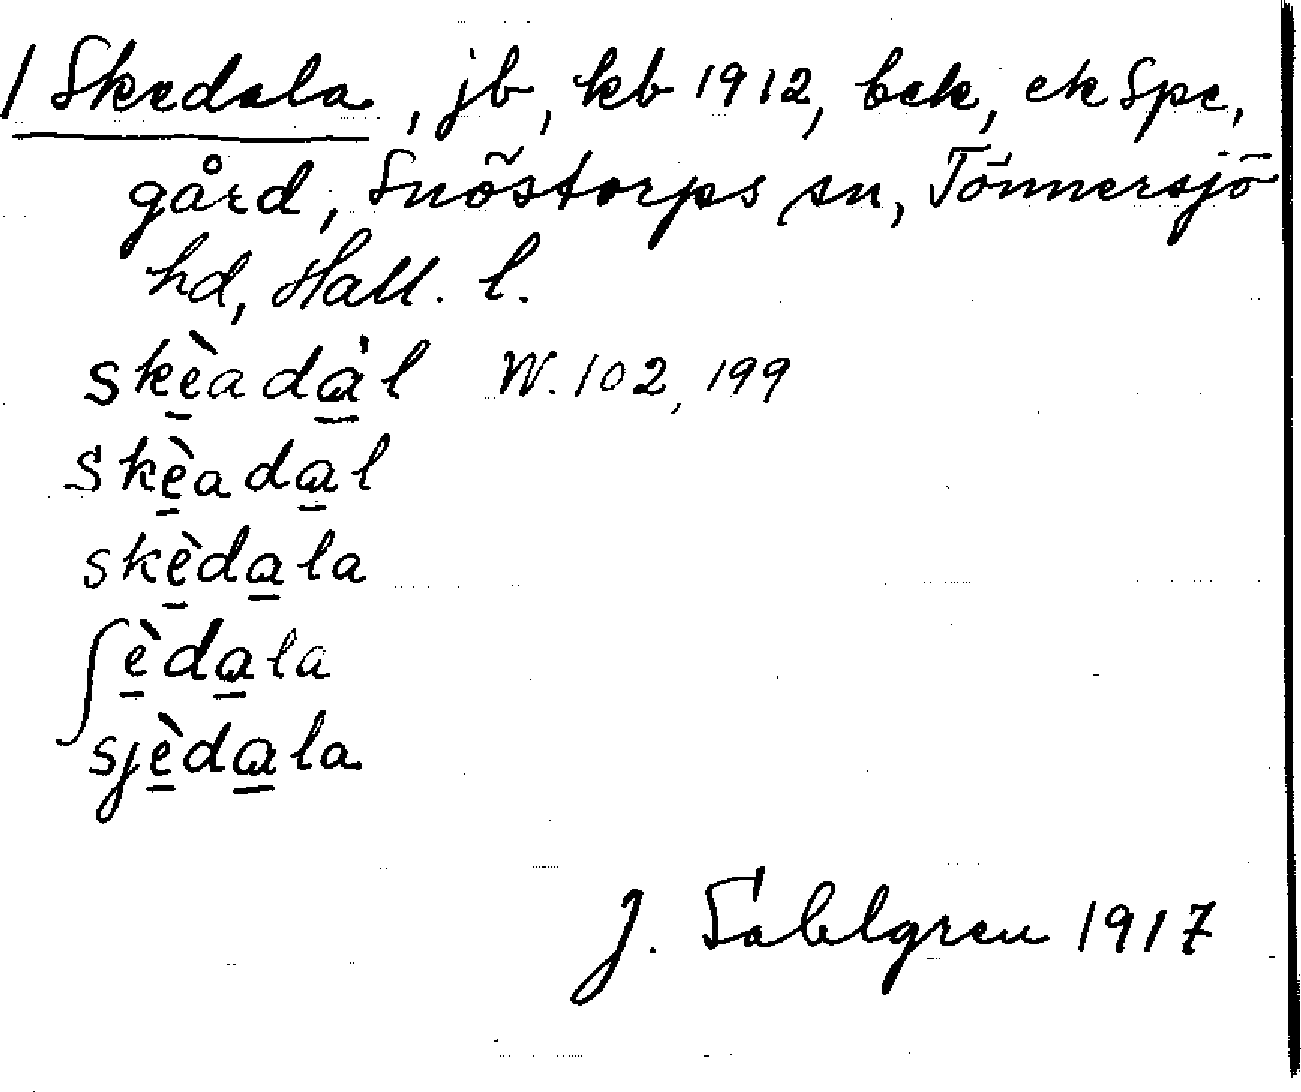 1 Skedala, jb, kb 1912, bek, ek Spe,
gård, Snöstorps sn, Tönnersjö
hd, Hall. l.
skèada̍l W. 102, 199
skèadal
skèdala
ʃèdala
sjèdala
J. Sahlgren 1917